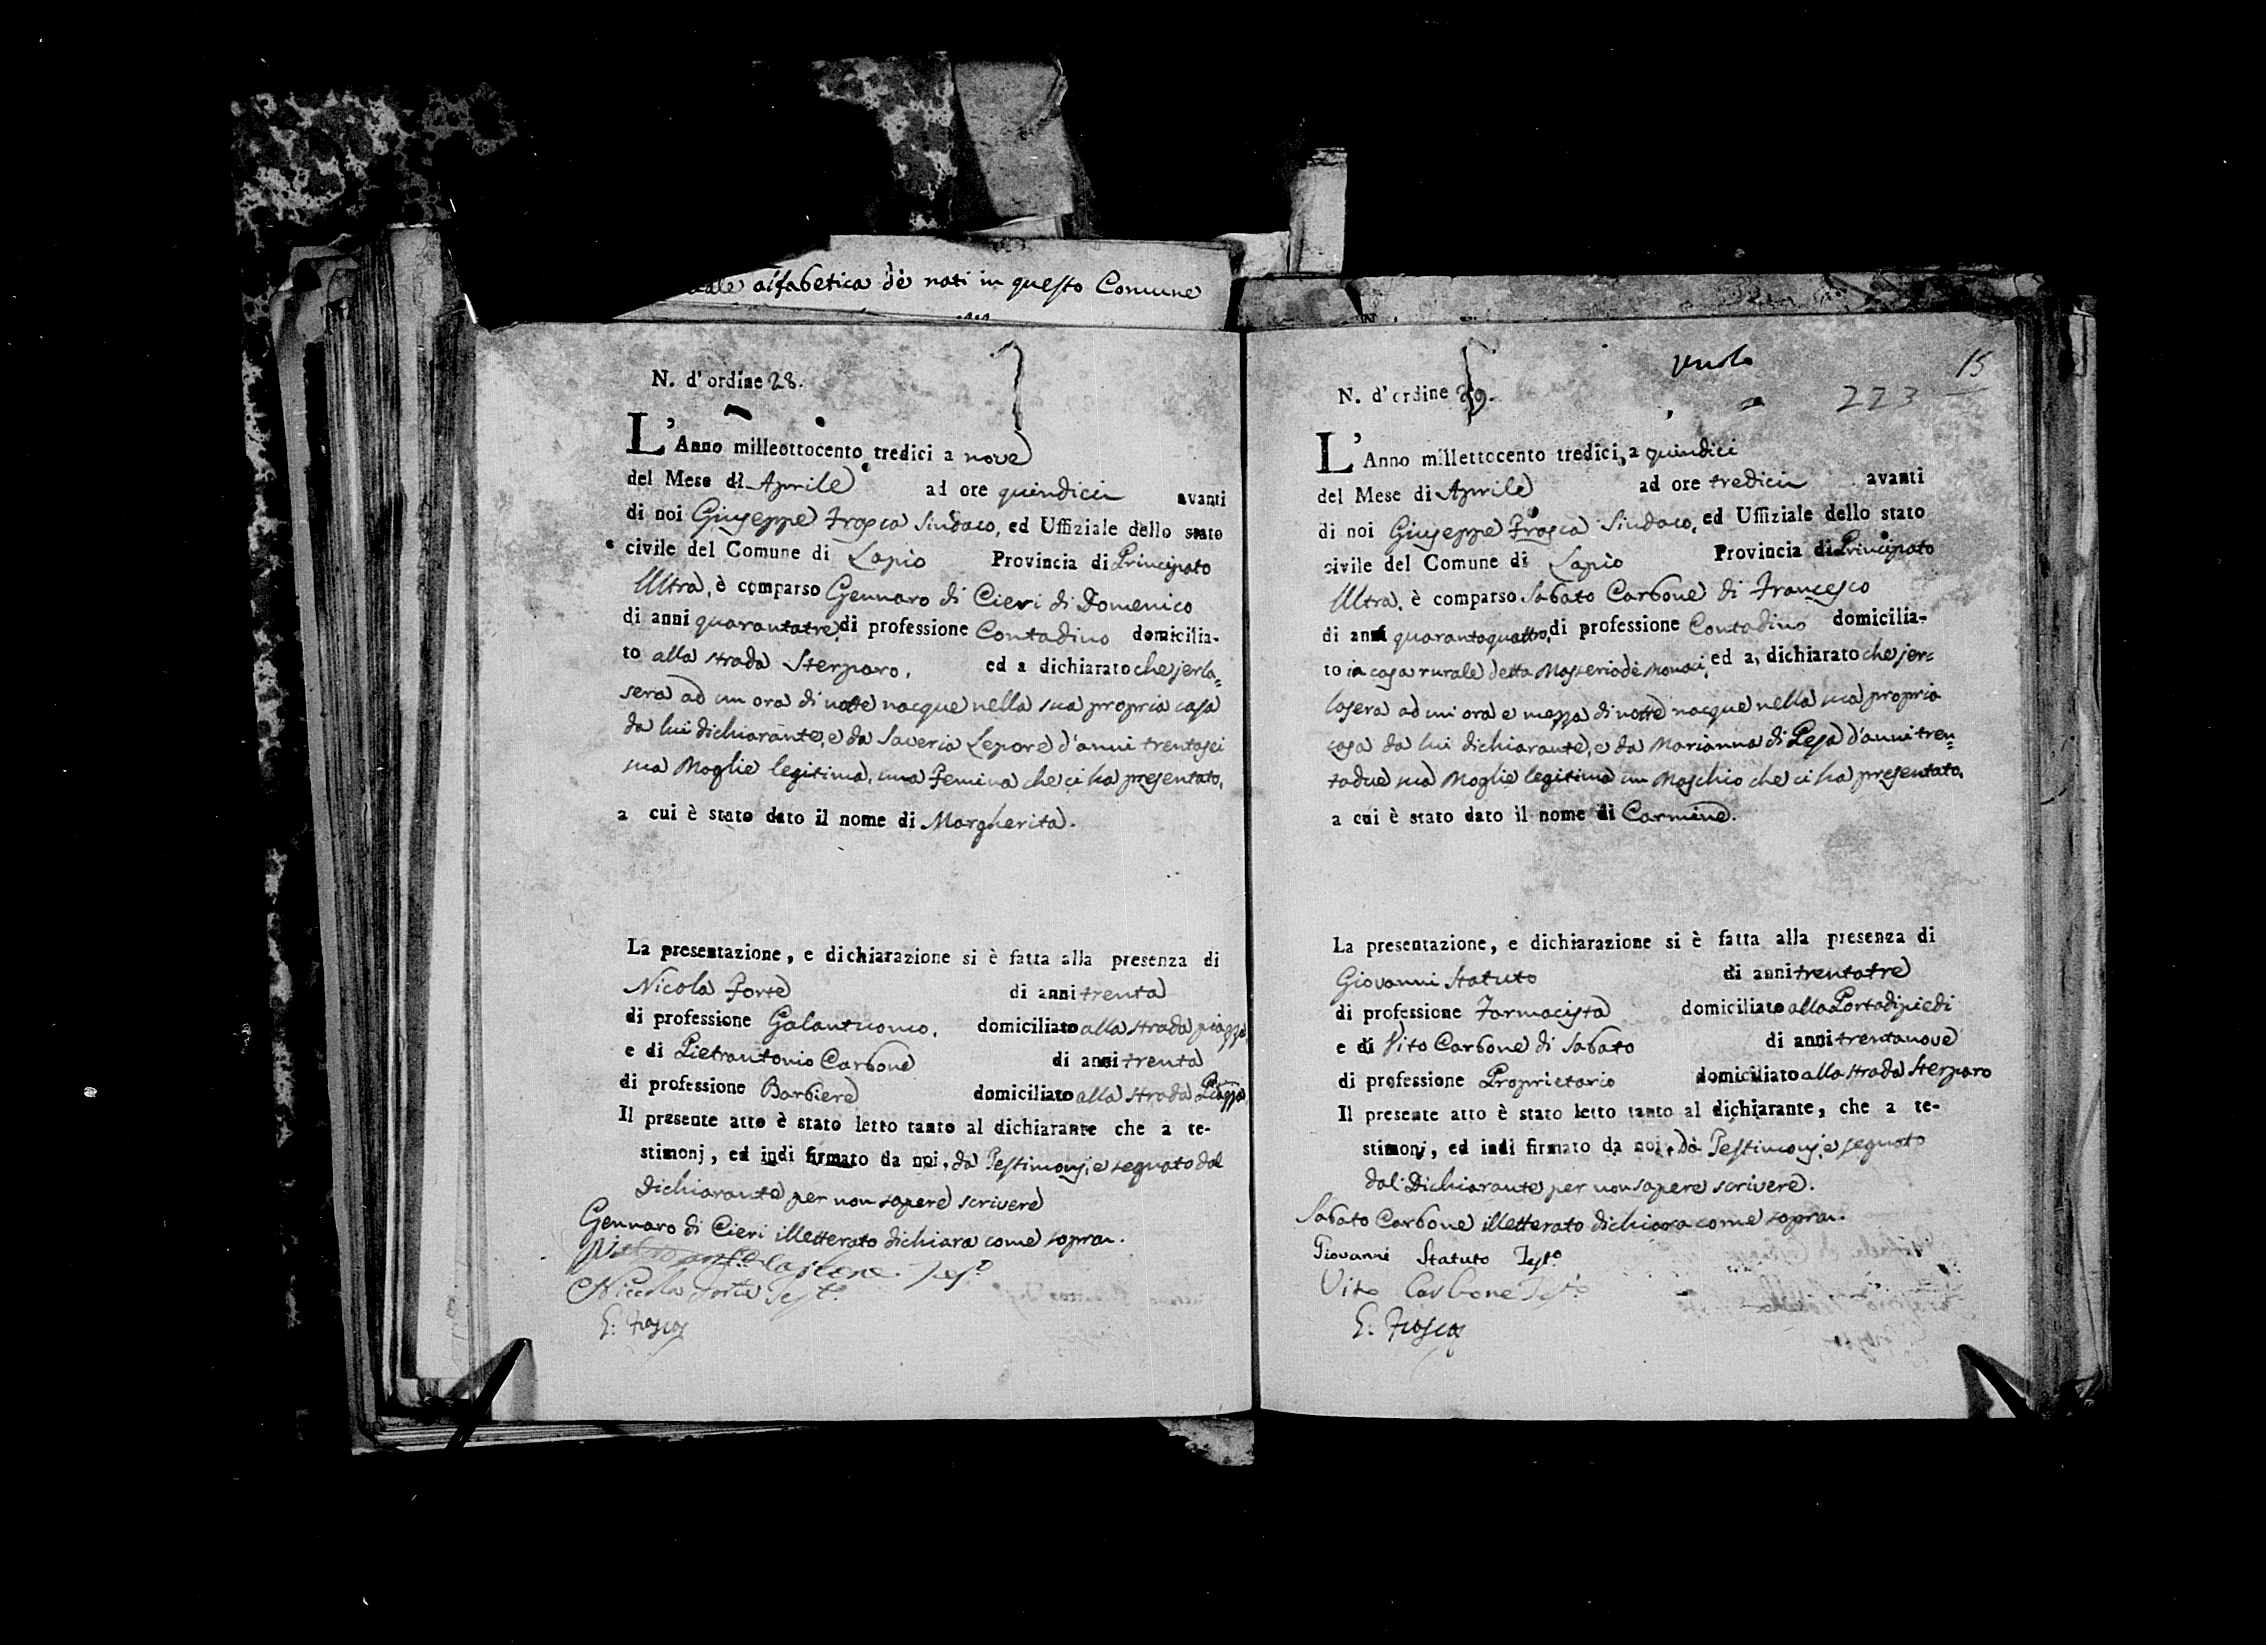 alfabetica de nati in questo Comune
N. d'ordine 28.
L'Anno milleottocento tredici a nove
del Mese di Aprile ad ore quindici avanti
di noi Giuseppe Frosca Sindaco, ed Uffiziale dello stato
civile del Comune di Lapio Provincia di Principato
Ultra, è comparso Gennaro di Cieri di Domenico
di anni quarantatre, di professione Contadino domicilia-
to alla strada Sterparo, ed a dichiarato che jerla=
sera ad un ora di notte nacque nella sua propria casa
da lui dichiarante, e da Saveria Lepore d'anni trentasei
sua Moglie legitima, una Femina che ci ha presentato,
a cui è stato dato il nome di Margherita.
La presentazione, e dichiarazione si è fatta alla presenza di
Nicola Forte di anni trenta
di professione Galantuomo, domiciliato alla strada piazza,
e di Pietrantonio Carbone di anni trenta
di professione Barbiere domiciliato alla strada Piazza,
Il presente atto è stato letto tanto al dichiarante che a te-
stimonj, ed indi firmato da noi, da Testimonj, e segnato dal
Dichiarante per non sapere scrivere
Gennaro di Cieri illetterato dichiara come sopra.
Carbone Test.o
Nicola Forte Test.o
G. Frosca
Vuolo
15
223
N. d'ordine 29.
L'Anno millettocento tredici, a quindici
del Mese di Aprile ad ore tredici avanti
di noi Giuseppe Frosca Sindaco, ed Uffiziale dello stato
civile del Comune di Lapio Provincia di Principato
Ultra, è comparso Sabato Carbone di Francesco
di anni quarantaquattro, di professione Contadino domicilia-
to in casa rurale detta Masseria de Monaci, ed a, dichiarato che jer=
lasera ad un ora e mezza di notte nacque nella sua propria
casa da lui dichiarante, e da Marianna di Pesa d'anni tren=
tadue sua Moglie legitima un Maschio che ci ha presentato,
a cui è stato dato il nome di Carmine.
La presentazione, e dichiarazione si è fatta alla presenza di
Giovanni Statuto di anni trentatre
di professione Farmacista domiciliato alla Portadipiedi
e di Vito Carbone di Sabato di anni trentanove
di professione Proprietario domiciliato alla strada Sterparo
Il presente atto è stato letto tanto al dichiarante, che a te-
stimonj, ed indi firmato da noi, da Testimonj, e segnato
dal Dichiarante per non sapere scrivere.
Sabato Carbone illetterato dichiara come sopra.
Giovanni Statuto Test.o
Vito Carbone Test.o
G. Frosca